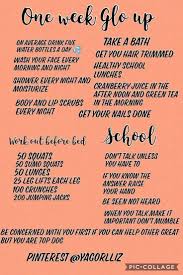 One week Glo up
ON AVERAGE DRINK FIVE
WATER BOTTLES A DAY
WASH YOUR FACE EVERY
MORNING AND NIGHT
SHOWER EVERY NIGHT AND
MOISTURIZE
BODY AND LIP SCRUBS
EVERY NIGHT
TAKE A BATH
GET YOU HAIR TRIMMED
HEALTHY SCHOOL
LUNCHES
CRANBERRY JUICE IN THE
AFTER NOON AND GREEN TEA
IN THE MORNING
GET YOUR NAILS DONE
Work out before bed
50 SQUATS
50 SUMO SQUATS
50 LUNGES
25 LEG LIFTS EACH LEG
100 CRUNCHES
200 JUMPING JACKS
School
DON'T TALK UNLESS
YOU HAVE TO
IF YOU KNOW THE
ANSWER RAISE
YOUR HAND
BE SEEN NOT HEARD
WHEN YOU TALK MAKE IT
IMPORTANT DON'T MUMBLE
BE CONCERNED WITH YOU FIRST IF YOU CAN HELP OTHER GREAT
BUT YOU ARE TOP DOG
PINTEREST @YAGORLLIZ
PIC·COLLAGE